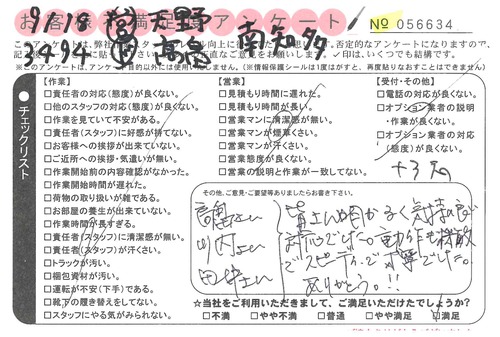 お客様 満足度アンケート
9/18
天野
No 056634
2494
高鳥
南知多
このアンケートは、弊社
否定的なアンケートになりますので、
お願いします。✓印は、いくつでも結構です。
※このアンケートは、アンケート目的以外には使用いたしません。(※情報保護シールは1度はがすと、再度貼りなおすことはできません)
チェックリスト
【作業】
□責任者の対応(態度)が良くない。
□他のスタッフの対応(態度)が良くない。
□作業を見ていて不安がある。
□責任者(スタッフ)に好感が持てない。
□お客様への挨拶が出来ていない。
□ご近所への挨拶・気遣いが無い。
□作業開始前の内容確認がなかった。
□作業開始時間が遅れた。
□荷物の取り扱いが雑である。
□お部屋の養生が出来ていない。
□作業時間が長すぎる。
□責任者(スタッフ)に清潔感が無い。
□責任者(スタッフ)が汗くさい。
□トラックが汚い。
□梱包資材が汚い。
□運転が不安(下手)である。
□靴下の履き替えをしてない。
□スタッフにやる気がみられない。
【営業】
□見積もり時間に遅れた。
□見積もり時間が長い。
□営業マンに清潔感が無い。
□営業マンが煙草くさい。
□営業マンが汗くさい。
□営業態度が良くない。
□営業の説明と作業が一致してない。
【受付・その他】
□電話の対応が良くない。
□オプション業者の説明・作業が良くない。
□オプション業者の対応(態度)が良くない。
その他、ご意見・ご要望等ありましたらお書き下さい。
皆さん感じが良く気持の良い
対応でした。動作も機敏
でスピーディで丁寧でした。
ありがとう。!!
☆当社をご利用いただきまして、ご満足いただけたでしょうか?
□不満 □やや不満 □普通 □やや満足 □満足